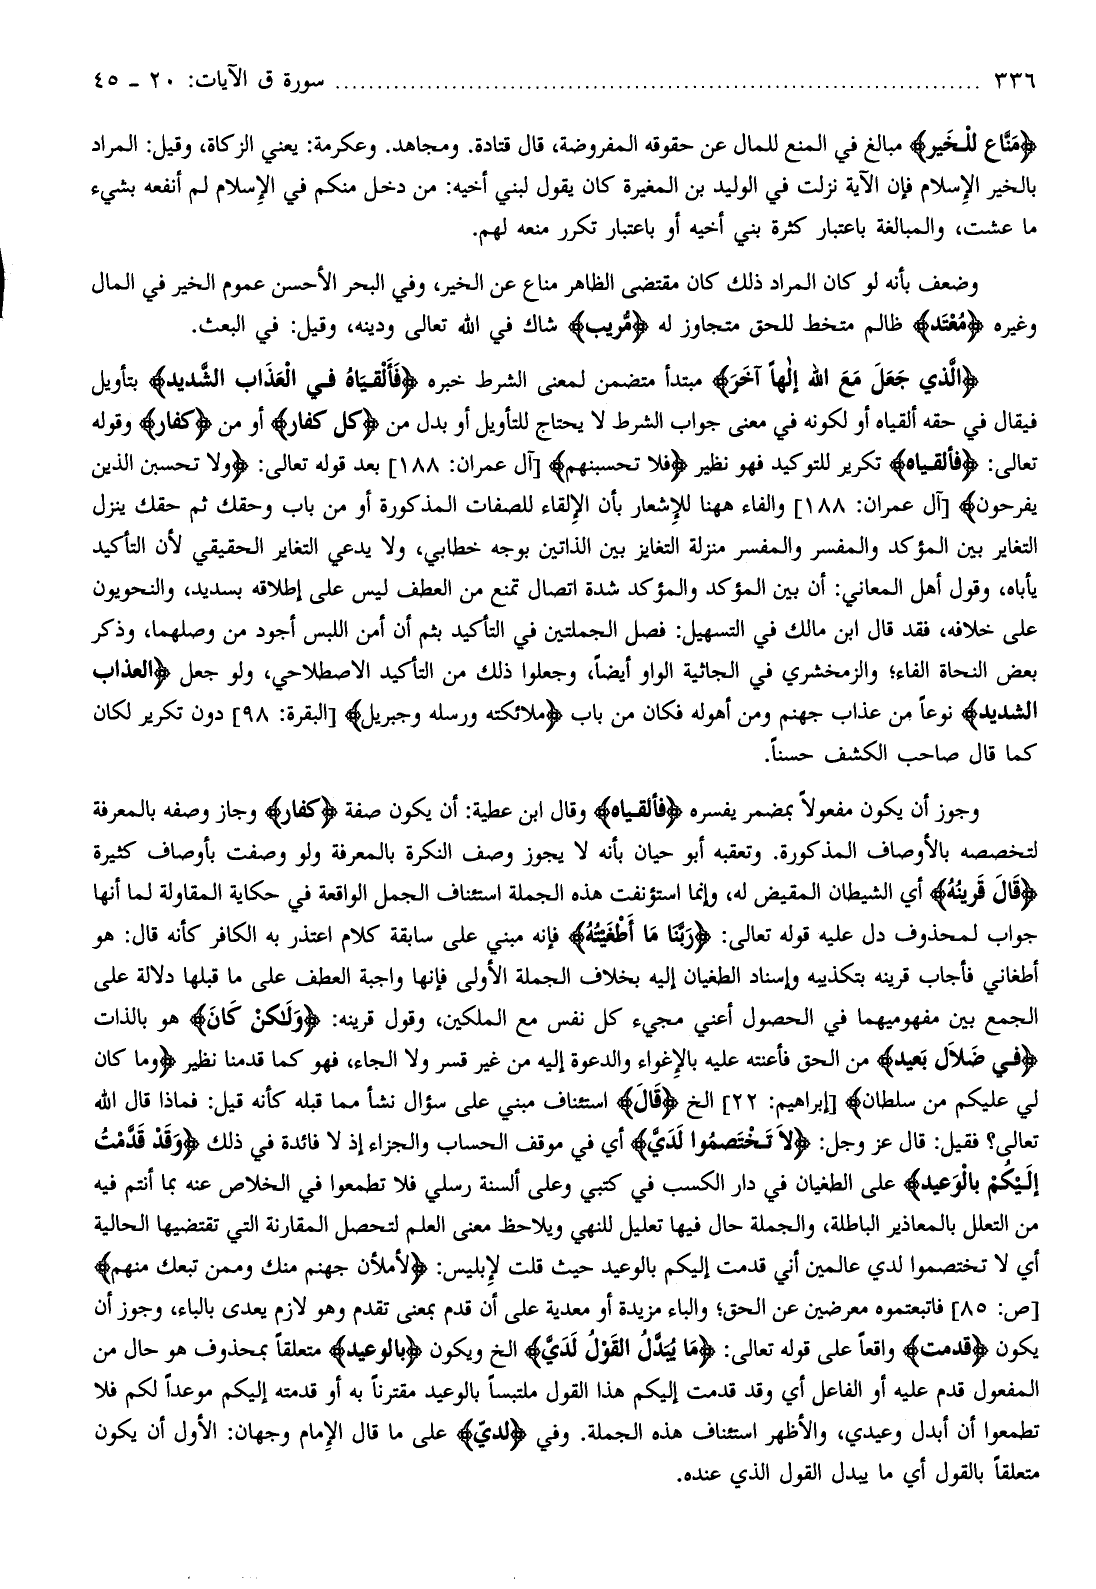 ٣٣٦ ........................................................................ سورة ق الآيات: ٢٠ ـ ٤٥
﴿مَنَّاعٍ لِلْخَيرِ﴾ مبالغ في المنع للمال عن حقوقه المفروضة، قال قتادة. ومجاهد. وعكرمة: يعني الزكاة، وقيل: المراد
بالخير الإسلام فإن الآية نزلت في الوليد بن المغيرة كان يقول لبني أخيه: من دخل منكم في الإسلام لم أنفعه بشيء
ما عشت، والمبالغة باعتبار كثرة بني أخيه أو باعتبار تكرر منعه لهم.
وضعف بأنه لو كان المراد ذلك كان مقتضى الظاهر مناع عن الخير، وفي البحر الأحسن عموم الخير في المال
وغيره ﴿مُعْتَد﴾ ظالم متخط للحق متجاوز له ﴿مُّريب﴾ شاك في الله تعالى ودينه، وقيل: في البعث.
﴿الَّذي جَعَلَ مَعَ الله إِلٰهاً آخَرَ﴾ مبتدأ متضمن لمعنى الشرط خبره ﴿فَأَلْقيَاهُ في الْعَذَاب الشَّديد﴾ بتأويل
فيقال في حقه ألقياه أو لكونه في معنى جواب الشرط لا يحتاج للتأويل أو بدل من ﴿كل كفار﴾ أو من ﴿كفار﴾ وقوله
تعالى: ﴿فألقياه﴾ تكرير للتوكيد فهو نظير ﴿فلا تحسبنهم﴾ [آل عمران: ١٨٨] بعد قوله تعالى: ﴿ولا تحسبن الذين
يفرحون﴾ [آل عمران: ١٨٨] والفاء ههنا للإشعار بأن الإلقاء للصفات المذكورة أو من باب وحقك ثم حقك ينزل
التغاير بين المؤكد والمفسر والمفسر منزلة التغايز بين الذاتين بوجه خطابي، ولا يدعي التغاير الحقيقي لأن التأكيد
يأباه، وقول أهل المعاني: أن بين المؤكد والمؤكد شدة اتصال تمنع من العطف ليس على إطلاقه بسديد، والنحويون
على خلافه، فقد قال ابن مالك في التسهيل: فصل الجملتين في التأكيد بثم أن أمن اللبس أجود من وصلهما، وذكر
بعض النحاة الفاء؛ والزمخشري في الجاثية الواو أيضاً، وجعلوا ذلك من التأكيد الاصطلاحي، ولو جعل ﴿العذاب
الشديد﴾ نوعاً من عذاب جهنم ومن أهوله فكان من باب ﴿ملائكته ورسله وجبريل﴾ [البقرة: ٩٨] دون تكرير لكان
كما قال صاحب الكشف حسناً.
وجوز أن يكون مفعولاً بمضمر يفسره ﴿فألقياه﴾ وقال ابن عطية: أن يكون صفة ﴿كفار﴾ وجاز وصفه بالمعرفة
لتخصصه بالأوصاف المذكورة. وتعقبه أبو حيان بأنه لا يجوز وصف النكرة بالمعرفة ولو وصفت بأوصاف كثيرة
﴿قَالَ قَرينُهُ﴾ أي الشيطان المقيض له، وإنما استؤنفت هذه الجملة استئناف الجمل الواقعة في حكاية المقاولة لما أنها
جواب لمحذوف دل عليه قوله تعالى: ﴿رَبَّنَا مَا أَطْغَيْتُهُ﴾ فإنه مبني على سابقة كلام اعتذر به الكافر كأنه قال: هو
أطغاني فأجاب قرينه بتكذيبه وإسناد الطغيان إليه بخلاف الجملة الأولى فإنها واجبة العطف على ما قبلها دلالة على
الجمع بين مفهوميهما في الحصول أعني مجيء كل نفس مع الملكين، وقول قرينه: ﴿وَلَـٰكنْ كَانَ﴾ هو بالذات
﴿في ضَلاَل بَعيد﴾ من الحق فأعنته عليه بالإغواء والدعوة إليه من غير قسر ولا الجاء، فهو كما قدمنا نظير ﴿وما كان
لي عليكم من سلطان﴾ [إبراهيم: ٢٢] الخ ﴿قَالَ﴾ استئناف مبني على سؤال نشأ مما قبله كأنه قيل: فماذا قال الله
تعالى؟ فقيل: قال عز وجل: ﴿لاَ تَخْتَصمُوا لَدَيَّ﴾ أي في موقف الحساب والجزاء إذ لا فائدة في ذلك ﴿وَقَدْ قَدَّمْتُ
إلَيْكُمْ بالْوَعيد﴾ على الطغيان في دار الكسب في كتبي وعلى ألسنة رسلي فلا تطمعوا في الخلاص عنه بما أنتم فيه
من التعلل بالمعاذير الباطلة، والجملة حال فيها تعليل للنهي ويلاحظ معنى العلم لتحصل المقارنة التي تقتضيها الحالية
أي لا تختصموا لدي عالمين أني قدمت إليكم بالوعيد حيث قلت لإبليس: ﴿لأملأن جهنم منك وممن تبعك منهم﴾
[ص: ٨٥] فاتبعتموه معرضين عن الحق؛ والباء مزيدة أو معدية على أن قدم بمعنى تقدم وهو لازم يعدى بالباء، وجوز أن
يكون ﴿قدمت﴾ واقعاً على قوله تعالى: ﴿مَا يُبَدَّلُ القَوْلُ لَدَيَّ﴾ الخ ويكون ﴿بالوعيد﴾ متعلقاً بمحذوف هو حال من
المفعول قدم عليه أو الفاعل أي وقد قدمت إليكم هذا القول ملتبساً بالوعيد مقترناً به أو قدمته إليكم موعداً لكم فلا
تطمعوا أن أبدل وعيدي، والأظهر استئناف هذه الجملة. وفي ﴿لديّ﴾ على ما قال الإمام وجهان: الأول أن يكون
متعلقاً بالقول أي ما يبدل القول الذي عنده.